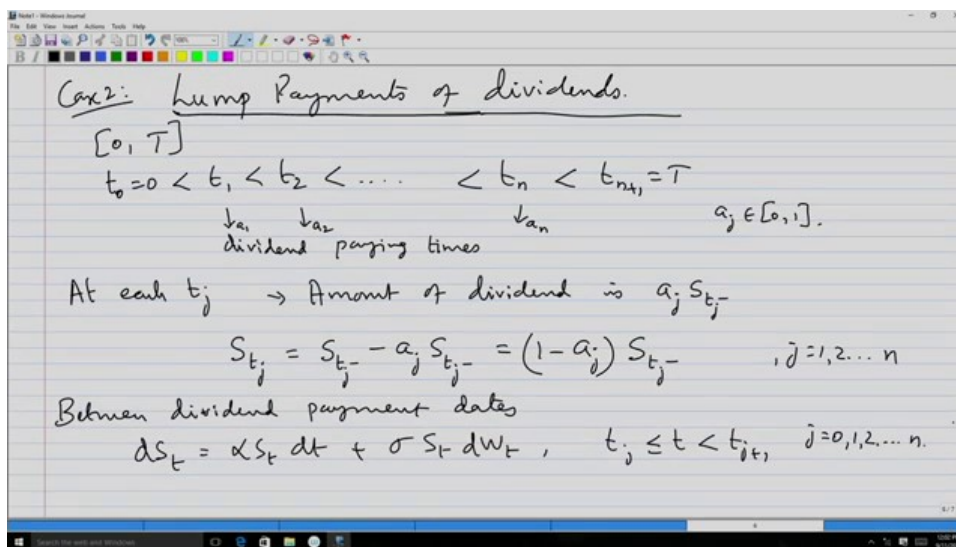 Note1 - Windows Journal
File Edit View Insert Actions Tools Help
B I
Case 2: Lump Payments of dividends.
[0, T]
t₀=0 < t₁ < t₂ < .... < tₙ < tₙ₊₁ = T
↓a₁ ↓a₂ ↓aₙ aⱼ ∈ [0,1].
dividend paying times
At each tⱼ → Amount of dividend is aⱼ S_{tⱼ-}
S_{tⱼ} = S_{tⱼ-} - aⱼ S_{tⱼ-} = (1 - aⱼ) S_{tⱼ-} , j=1,2... n
Between dividend payment dates
dSₜ = αSₜ dt + σ Sₜ dWₜ , tⱼ ≤ t < tⱼ₊₁ j=0,1,2... n.
6
Search the web and Windows